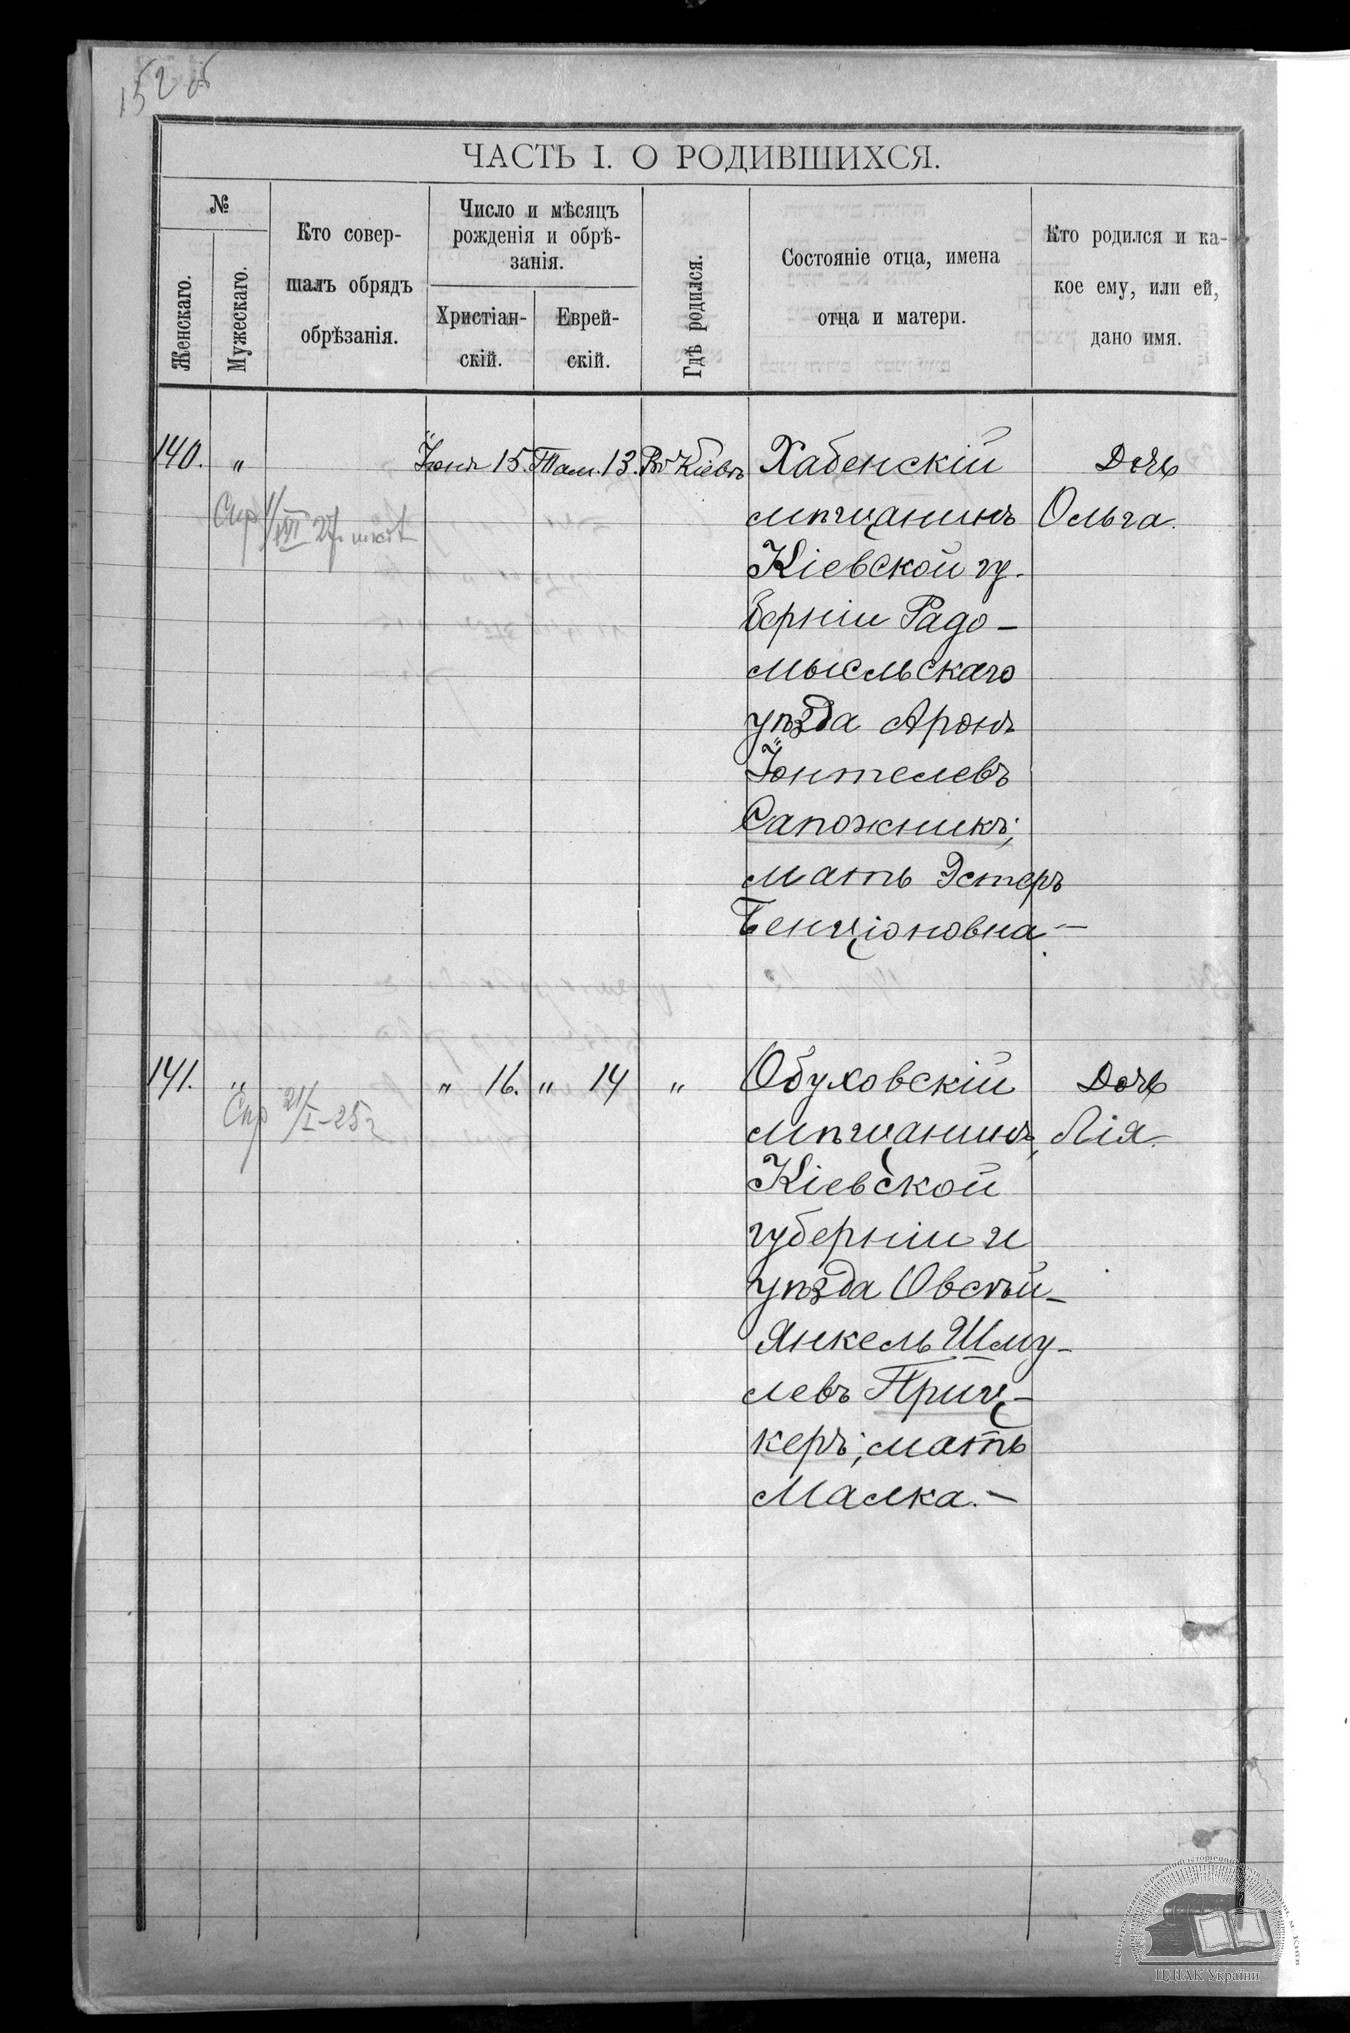 152 об
ЧАСТЬ I. О РОДИВШИХСЯ.
№
Женскаго.
Мужескаго.
Кто совер-
шалъ обрядъ
обрѣзанія.
Число и мѣсяцъ
рожденія и обрѣ-
занія.
Христіан-
скій.
Еврей-
скій.
Гдѣ родился.
Состояніе отца, имена
отца и матери.
Кто родился и ка-
кое ему, или ей,
дано имя.
140. " Іюня 15. Там. 13. Въ Кіевѣ Хабенскій Дочь
мѣщанинъ Ольга.
Кіевской гу-
берніи Радо-
мысльскаго
уѣзда Аронъ
Іонтелевъ
Сапожникъ;
мать Эстеръ
Бенціоновна.—
Спр
27
141. " " 16. " 14 " Обуховскій Дочь
мѣщанинъ, Лія.
Кіевской
губерніи и
уѣзда Овсѣй-
Янкель Шму-
левъ Приц-
керъ; мать
Малка.—
Спр 21/I-25г
ЦДІАК України